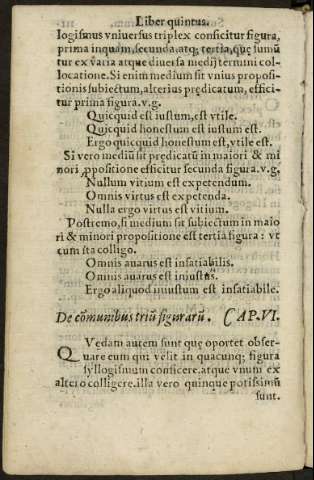 Liber quintus.
logismus vniuersus triplex conficitur figura,
prima inquam, secunda, atq; tertia, quę sumũ
tur ex varia atque diuersa medij termini col-
locatione. Si enim medium sit vnius proposi-
tionis subiectum, alterius prędicatum, effici-
tur prima figura. v.g.
Quicquid est iustum, est vtile.
Quicquid honestum est iustum est.
Ergo quicquid honestum est, vtile est.
Si vero mediũ sit prędicatũ in maiori & mi
nori ꝓpositione efficitur secunda figura. v.g.
Nullum vitium est expetendum.
Omnis virtus est expetenda.
Nulla ergo virtus est vitium.
Postremo, si medium sit subiectum in maio
ri & minori propositione est tertia figura: vt
cum ita colligo.
Omnis auarus est insatiabilis.
Omnis auarus est iniustus.
Ergo aliquod iniustum est insatiabile.
De cõmunibus triũ figurarũ. CAP. VI.
Quedam autem sunt quę oportet obser-
uare eum qui velit in quacunq; figura
syllogismum conficere, atque vnum ex
altero colligere. illa vero quinque potissimũ
sunt.